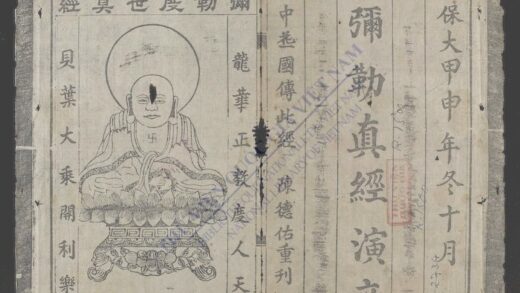 保大甲申年冬十月
彌勒真經演
中
國傳此經 陳德佑重刊
彌勒度世真經
龍華正教度人天
卍
貝葉大乘開利樂
VIETNAM
NATIONAL LIBRARY OF VIETNAM